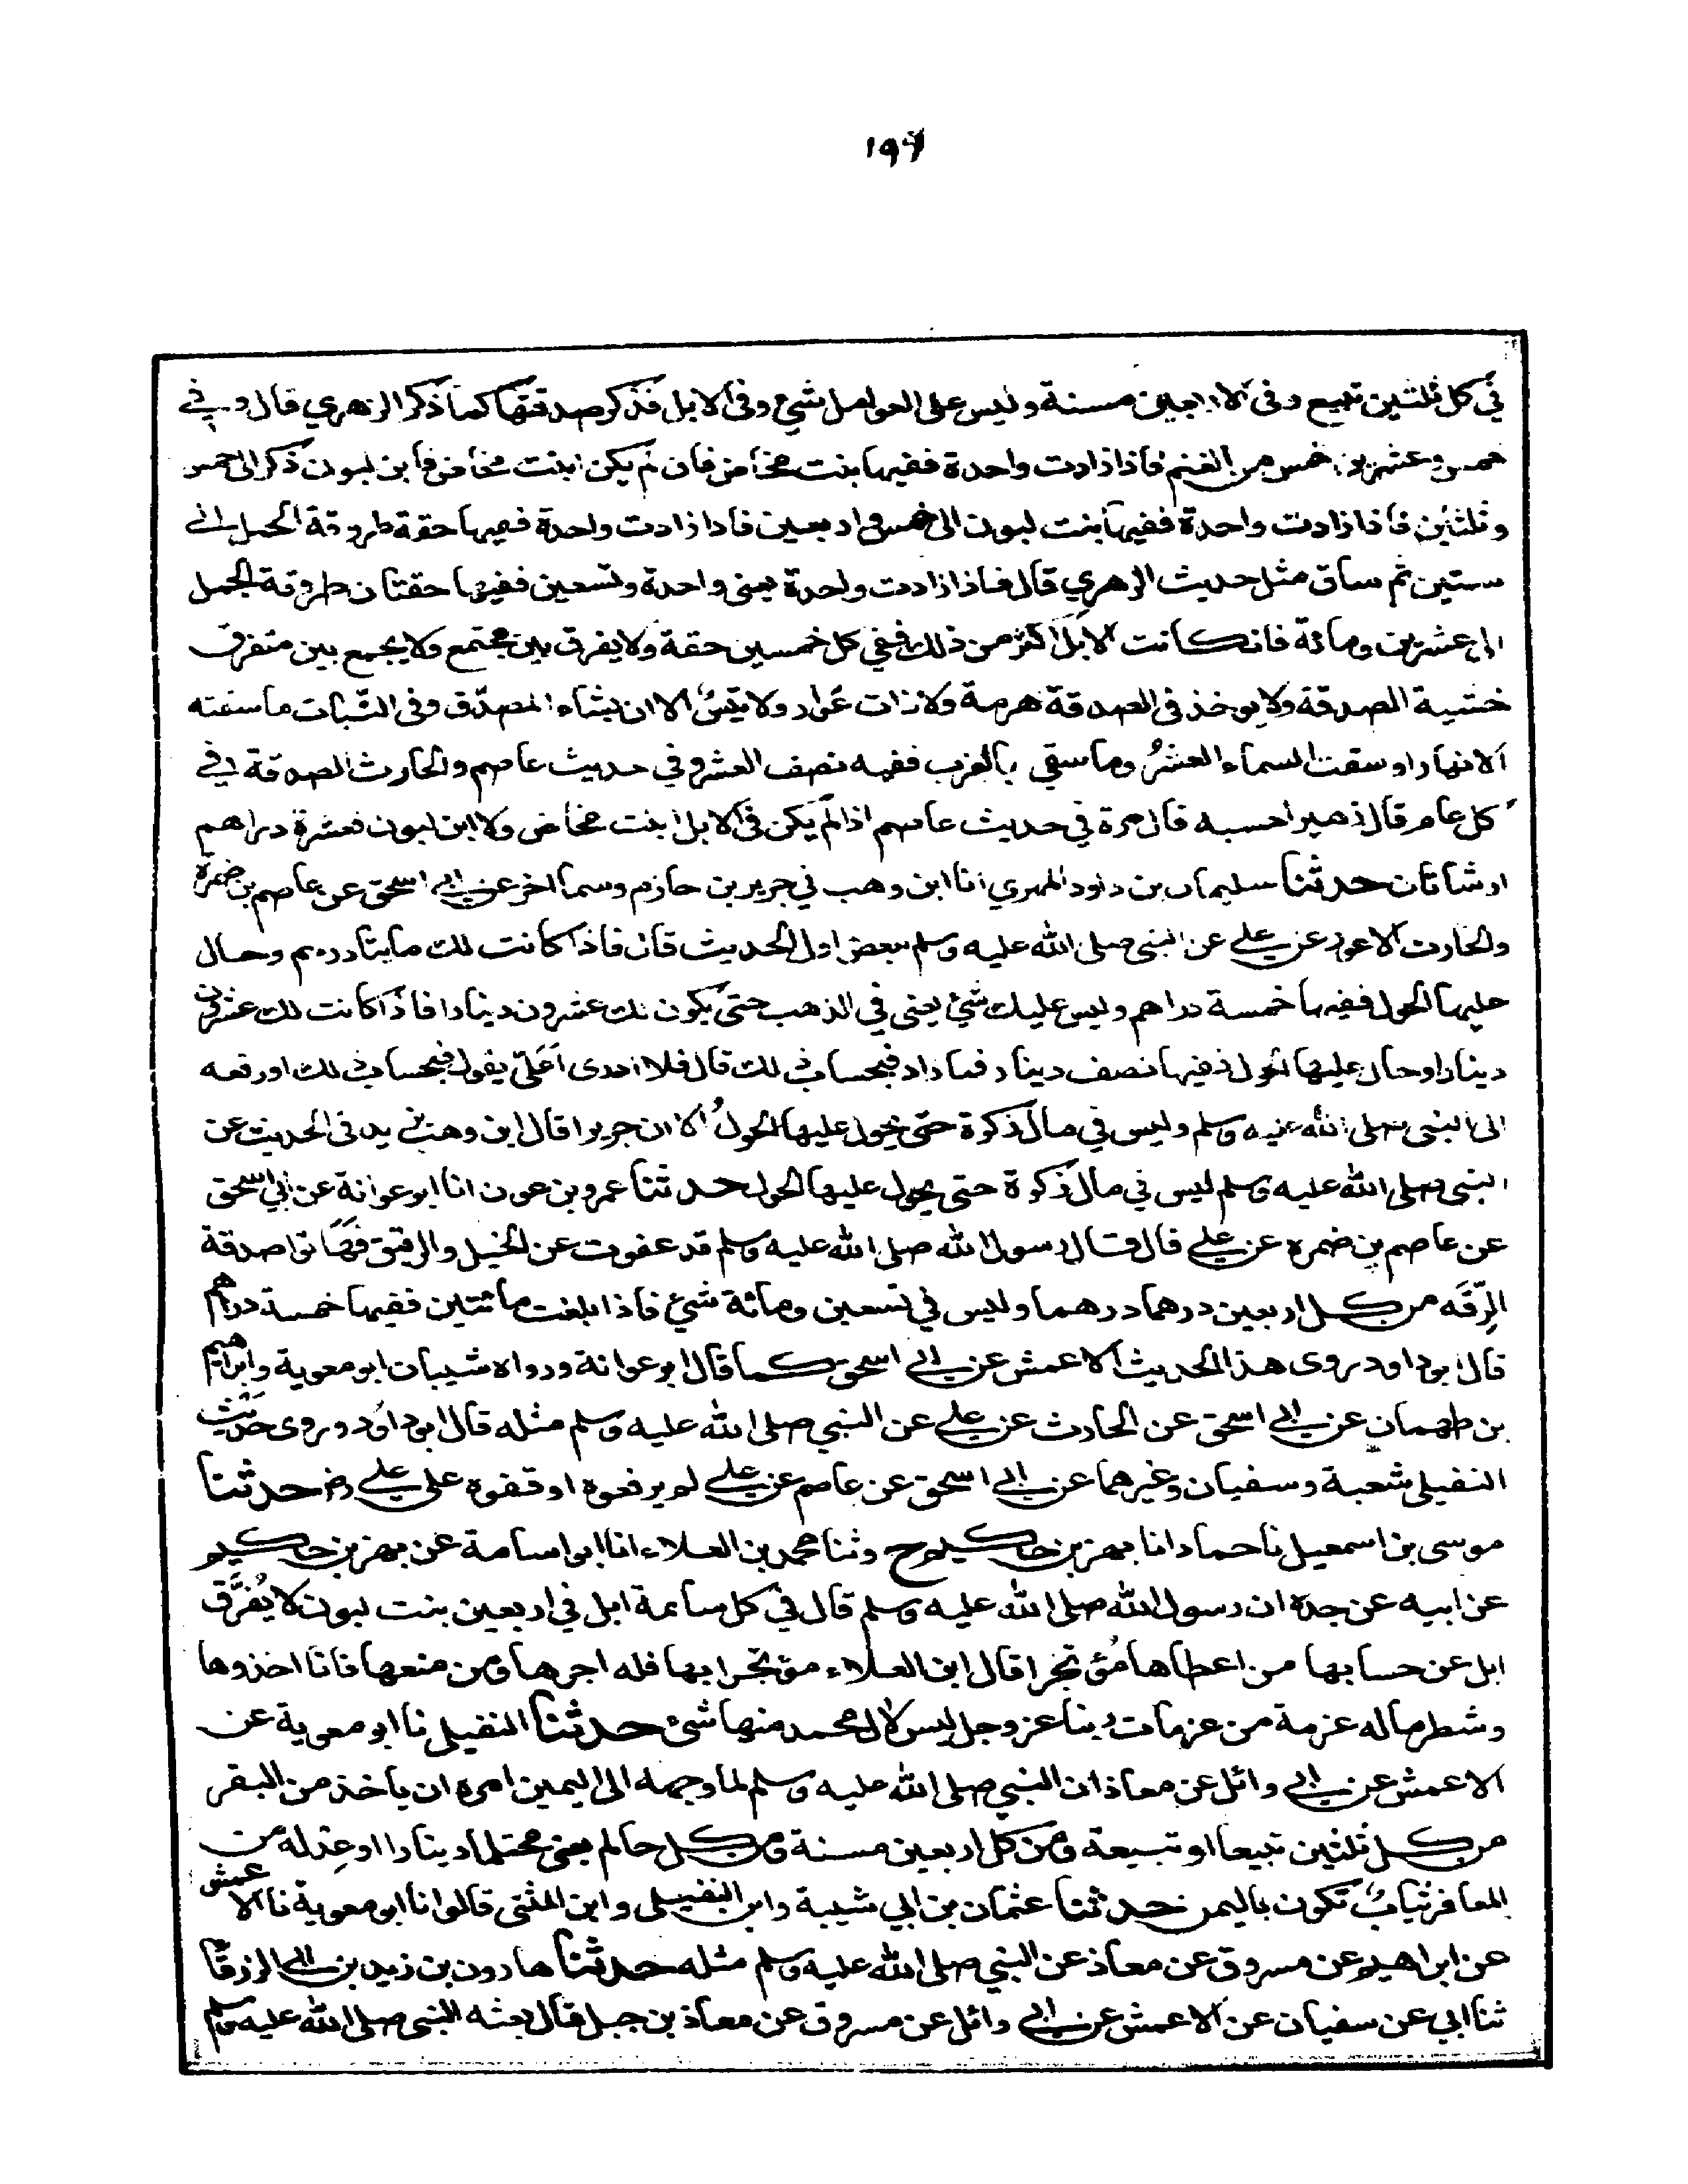 في كل ثلثين تبيع وفى الاربعين مسنة وليس على العوامل شيء وفى الابل فذكر صدقتها كما ذكر الزهري قال وفي
خمس وعشرين خمس من الغنم فاذا زادت واحدة ففيها بنت مخاض فان لم يكن ابنت مخاض فابن لبون ذكر الى خمس
وثلثين فاذا زادت واحدة ففيها بنت لبون الى خمس واربعين فاذا زادت واحدة ففيها حقة طروقة الجمل الى
ستين ثم ساق مثل حديث الزهري قال فاذا زادت واحدة يعني واحدة وتسعين ففيها حقتان طروقة الجمل
الى عشرين ومائة فان كانت الابل اكثر من ذلك ففي كل خمسين حقة ولا يفرق بين مجتمع ولا يجمع بين متفرق
خشية الصدقة ولا يوخذ في الصدقة هرمة ولا ذات عوار ولا تيس الا ان يشاء المصدق وفى النبات ما سقته
الانهار او سقت السماء العشر وما سقي بالغرب ففيه نصف العشر وفي حديث عاصم والحارث الصدقة في
كل عام قال زهير احسبه قال مرة في حديث عاصم اذا لم يكن في الابل ابنت مخاض ولا ابن لبون فعشرة دراهم
او شاتان حدثنا سليمان بن داود المهري انا ابن وهب ني جرير بن حازم وسما اخر عن ابي اسحق عن عاصم بن ضمرة
والحارث الاعور عن علي عن النبي صلى الله عليه وسلم ببعض اول الحديث قال فاذا كانت لك مايتا درهم وحال
عليها الحول ففيها خمسة دراهم وليس عليك شئ يعني في الذهب حتى يكون لك عشرون دينارا فاذا كانت لك عشرون
دينارا وحال عليها الحول ففيها نصف دينار فما زاد فبحساب ذلك قال فلا ادرى اعلي يقول فبحساب ذلك او رفعه
الى النبي صلى الله عليه وسلم وليس في مال زكوة حتى يحول عليها الحول الا ان جريرا قال ابن وهب يزيد في الحديث عن
النبي صلى الله عليه وسلم ليس في مال زكوة حتى يحول عليها الحول حدثنا عمرو بن عون انا ابو عوانة عن ابي اسحق
عن عاصم بن ضمره عن علي قال قال رسول الله صلى الله عليه وسلم قد عفوت عن الخيل والرقيق فهاتوا صدقة
الرقه من كل اربعين درهما درهما وليس في تسعين ومائة شئ فاذا بلغت مائتين ففيها خمسة دراهم
قال ابو داود روى هذا الحديث الاعمش عن ابي اسحق كما قال ابو عوانة ورواه شيبان ابو معوية وابراهيم
بن طهمان عن ابي اسحق عن الحارث عن علي عن النبي صلى الله عليه وسلم مثله قال ابو داود وروى حديث
النفيلي شعبة وسفيان وغيرهما عن ابي اسحق عن عاصم عن علي لم يرفعوه اوقفوه على علي رض حدثنا
موسى بن اسمعيل نا حماد انا بهز بن حكيم ح وثنا محمد بن العلاء انا ابو اسامة عن بهز بن حكيم
عن ابيه عن جده ان رسول الله صلى الله عليه وسلم قال في كل سائمة ابل في اربعين بنت لبون لا يفرق
ابل عن حسابها من اعطاها مؤتجرا قال ابن العلاء مؤتجرا بها فله اجرها ومن منعها فانا اخذوها
وشطر ماله عزمة من عزمات ربنا عز وجل ليس لال محمد منها شئ حدثنا النفيلي نا ابو معوية عن
الاعمش عن ابي وائل عن معاذ ان النبي صلى الله عليه وسلم لما وجهه الى اليمين امره ان ياخذ من البقر
من كل ثلثين تبيعا او تبيعة ومن كل اربعين مسنة ومن كل حالم يعني محتلما دينارا او عدله من
المعافر ثياب تكون باليمن حدثنا عثمان بن ابي شيبة وابن النفيلي وابن المثنى قالوا نا ابو معوية نا الاعمش
عن ابراهيم عن مسروق عن معاذ عن النبي صلى الله عليه وسلم مثله حدثنا هارون بن زيد بن ابي الزرقا
ثنا ابي عن سفيان عن الاعمش عن ابي وائل عن مسروق عن معاذ بن جبل قال بعثه النبي صلى الله عليه وسلم